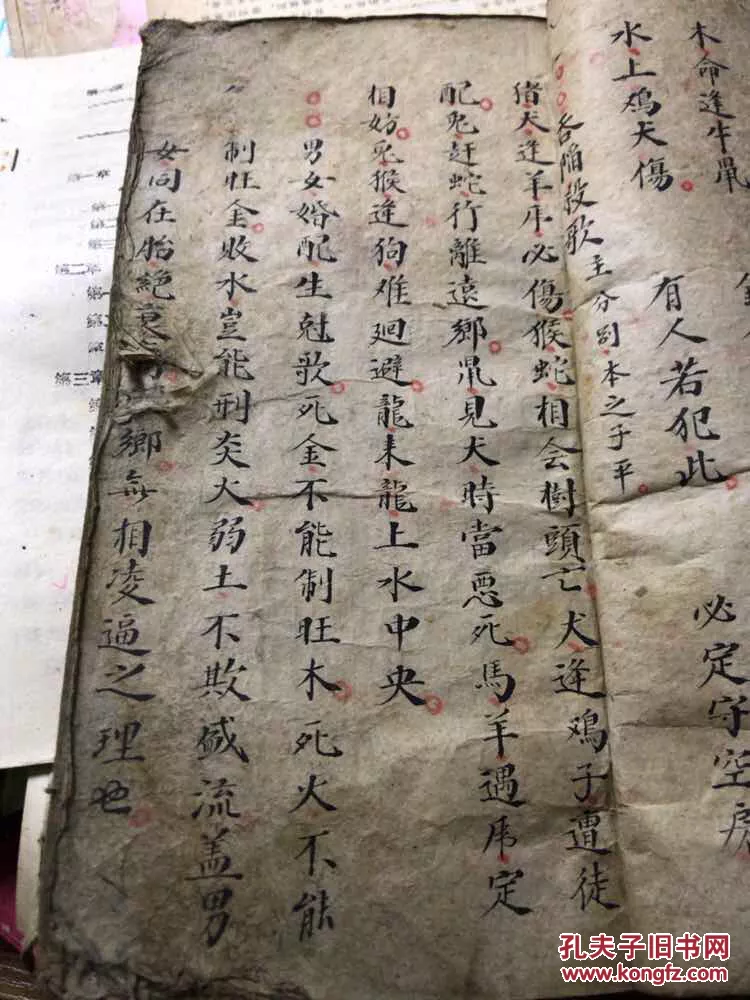 木命逢牛鼠
水上鸡犬傷
有人若犯此
必定守空房
各陷投歌主分别本之子平
猪犬逢羊虎必傷猴蛇相会樹頭亡犬逢鸡子遭徒
配兎赶蛇行離遠鄉鼠見犬時當悪死馬羊遇虎定
相妨兎猴逢狗难廻避龍来龍上水中央
男女婚配生尅歌死金不能制旺木死火不能
制旺金敗水豈能刑炎火弱土不欺盛流盖男
女同在胎絶衰 鄉無相凌逼之理也
孔夫子旧书网
kongfz.com